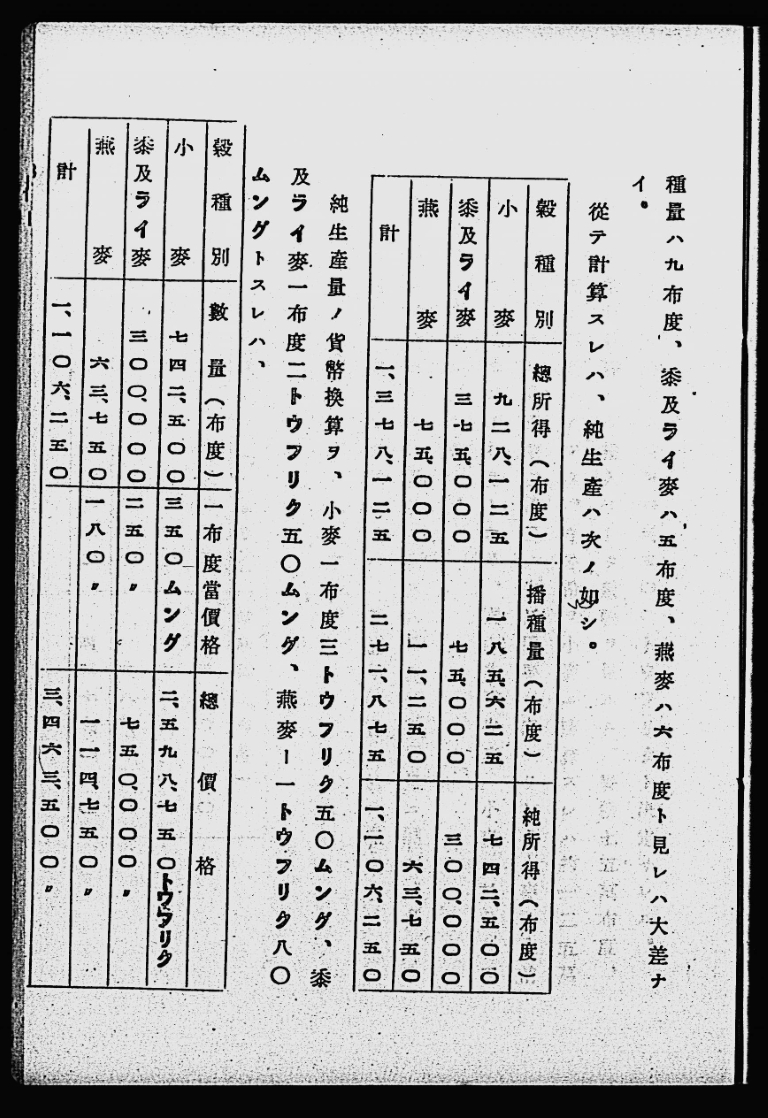 種量ハ九布度、黍及ライ麥ハ五布度、燕麥ハ六布度ト見レハ大差ナ
イ。
從テ計算スレハ、純生產ハ次ノ如シ。
穀種別 總所得(布度) 播種量(布度) 純所得(布度)
小麥 九二八、一二五 一八五、六二五 七四二、五〇〇
黍及ライ麥 三七五、〇〇〇 七五、〇〇〇 三〇〇、〇〇〇
燕麥 七五、〇〇〇 一一、二五〇 六三、七五〇
計 一、三七八、一二五 二七一、八七五 一、一〇六、二五〇
純生產量ノ貨幣換算ヲ、小麥一布度三トウフリク五〇ムング、黍
及ライ麥一布度二トウフリク五〇ムング、燕麥ー一トウフリク八〇
ムングトスレハ、
穀種別 數量(布度) 一布度當價格 總價格
小麥 七四二、五〇〇 三五〇ムング 二、五九八、七五〇トウフリク
黍及ライ麥 三〇〇、〇〇〇 二五〇〃 七五〇、〇〇〇〃
燕麥 六三、七五〇 一八〇〃 一一四、七五〇〃
計 一、一〇六、二五〇 三、四六三、五〇〇〃